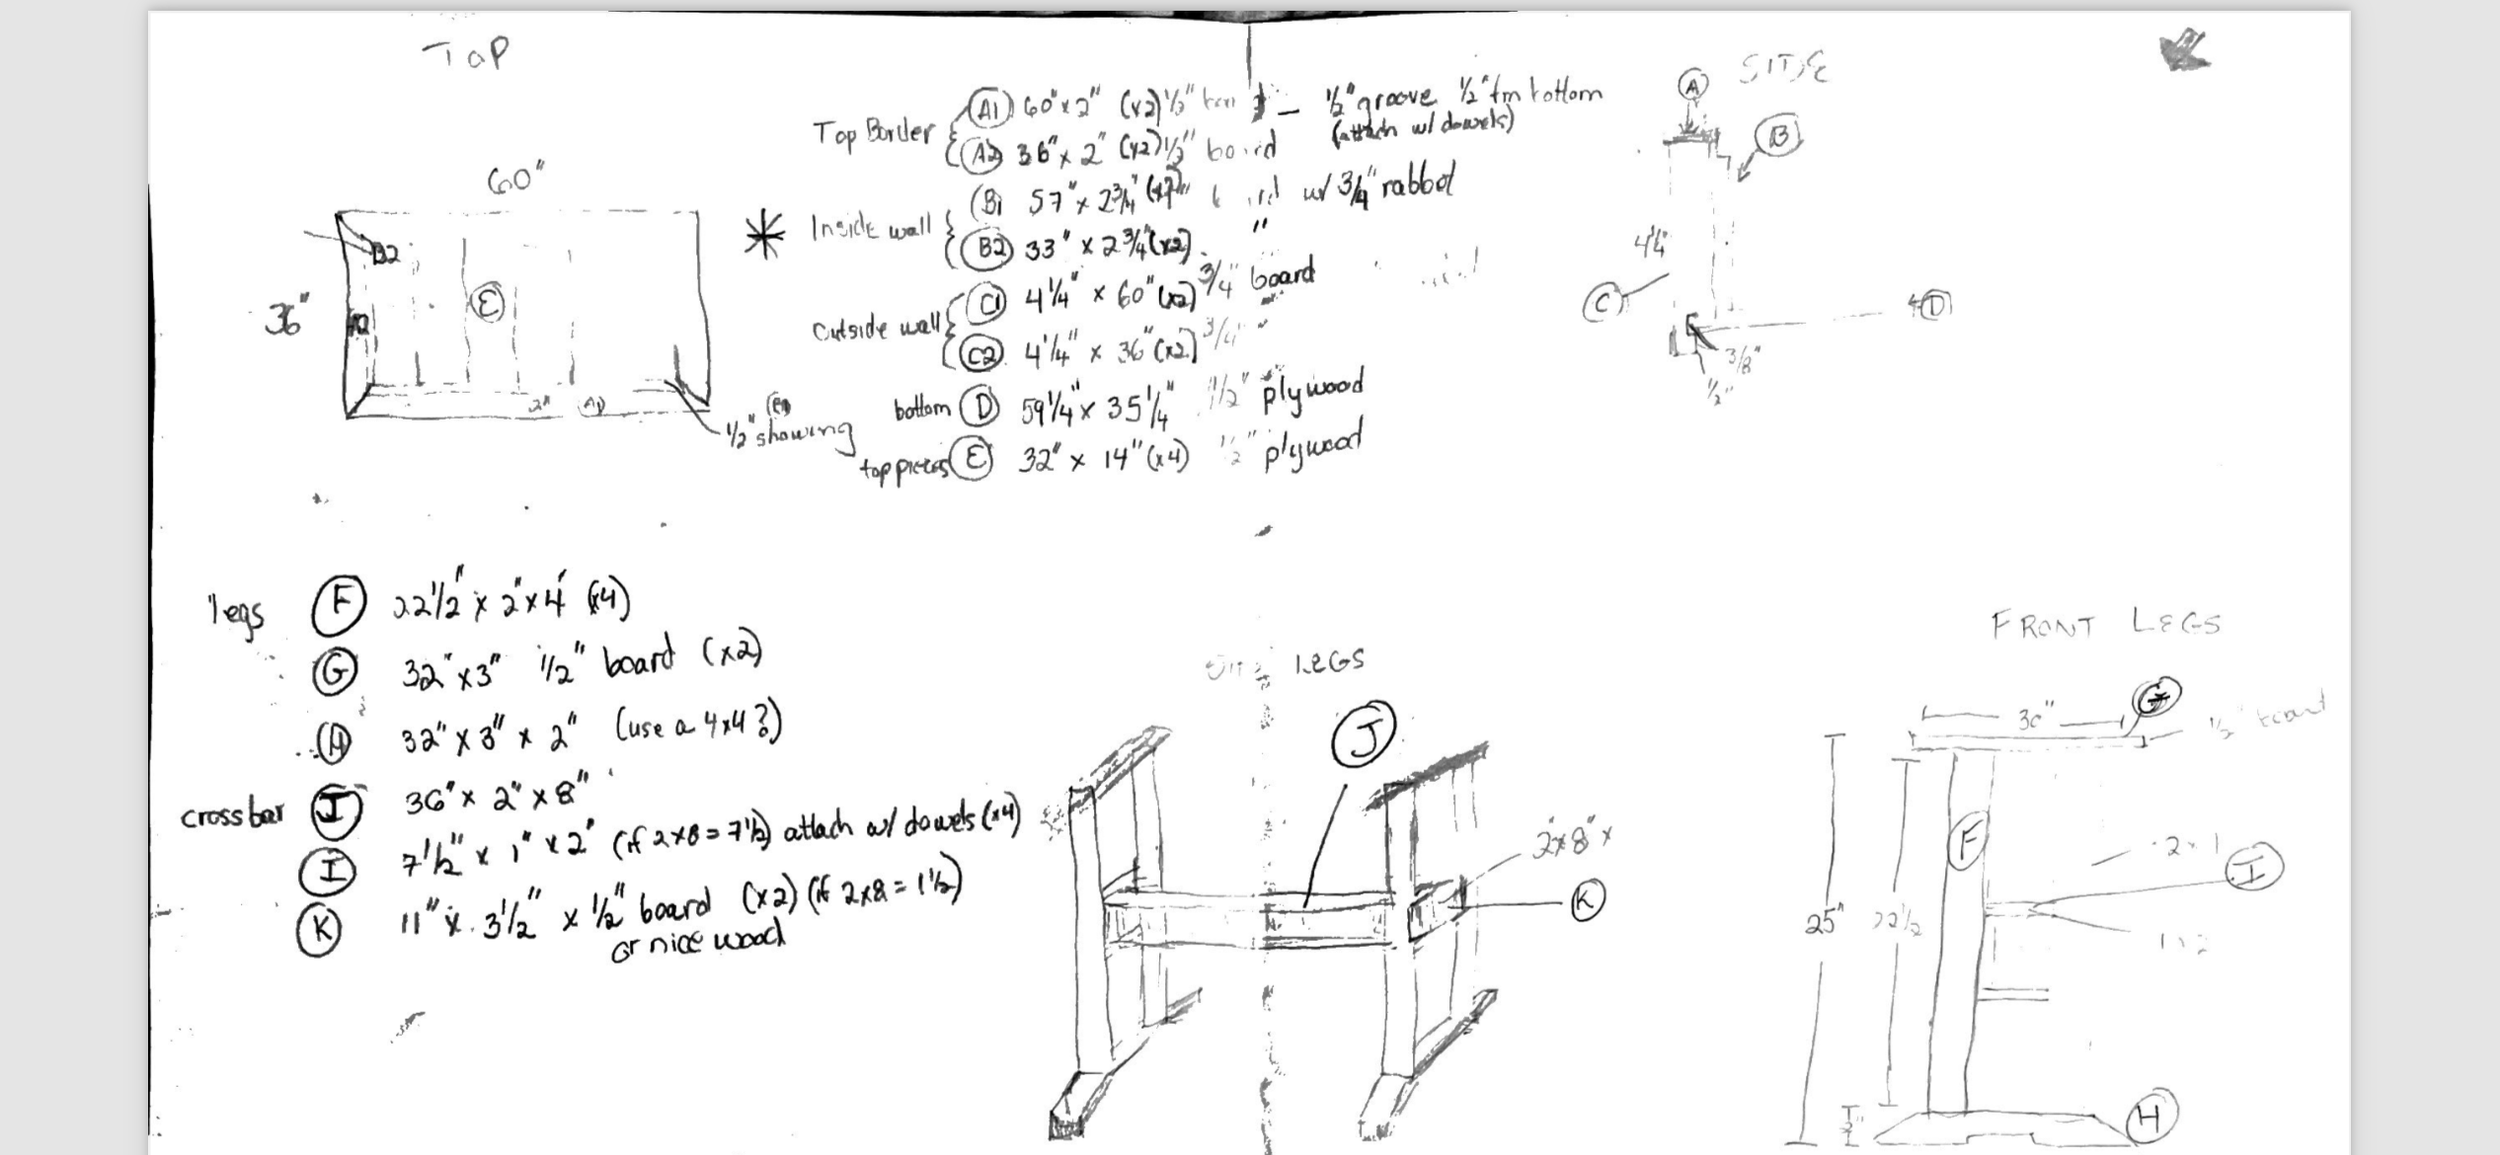 TOP
60"
36"
B2
E
2" A1
1/2" showing
Top Border
A1 60" x 2" (x2) 1/2" — 1/2" groove 1/2" fm bottom
(attach w/ dowels)
A2 36" x 2" (x2) 1/2" board
Inside wall
B1 57" x 2 3/4" w/ 3/4" rabbet
B2 33" x 2 3/4" (x2) "
Outside wall
C1 4 1/4" x 60" (x2) 3/4" board
C2 4 1/4" x 36" (x2) 3/4" "
bottom D 59 1/4" x 35 1/4" 1/2" plywood
top pieces E 32" x 14" (x4) 1/2" plywood
SIDE
A
B
4 1/4"
C
D
3/8"
1/2"
legs F 22 1/2" x 2" x 4" (x4)
G 32" x 3" 1/2" board (x2)
H 32" x 3" x 2" (use a 4x4?)
crossbar J 36" x 2" x 8"
I 7 1/2" x 1" x 2" (if 2x8 = 7 1/2) attach w/ dowels (x4)
K 11" x 3 1/2" x 1/2" board (x2) (if 2x8 = 1 1/2)
or nice wood
LEGS
J
2"x8"x
K
FRONT LEGS
30"
G
1/2" board
F
2x1
I
25"
22 1/2
1x2
H